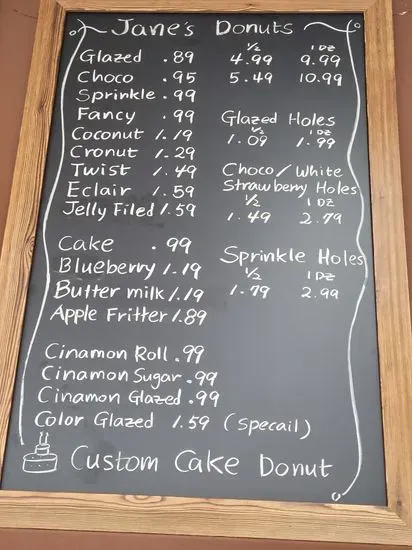 Jane's Donuts
½ 1 DZ
Glazed .89 4.99 9.99
Choco .95 5.49 10.99
Sprinkle .99
Fancy .99
Coconut 1.19
Cronut 1.29
Twist 1.49
Eclair 1.59
Jelly Filed 1.59
Glazed Holes
½ 1 DZ
1.09 1.99
Choco/White
Strawberry Holes
½ 1 DZ
1.49 2.79
Cake .99
Blueberry 1.19
Butter milk 1.19
Apple Fritter 1.89
Sprinkle Holes
½ 1 DZ
1.79 2.99
Cinamon Roll .99
Cinamon Sugar .99
Cinamon Glazed .99
Color Glazed 1.59 (Specail)
Custom Cake Donut